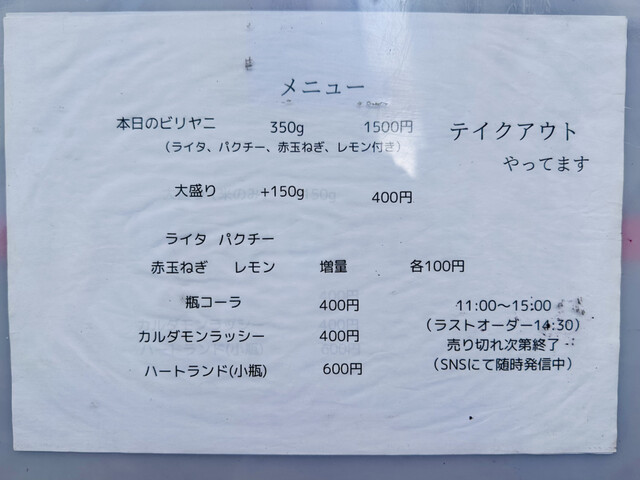 メニュー
本日のビリヤニ 350g 1500円
（ライタ、パクチー、赤玉ねぎ、レモン付き）
テイクアウト
やってます
大盛り +150g 400円
ライタ パクチー
赤玉ねぎ レモン 増量 各100円
瓶コーラ 400円
カルダモンラッシー 400円
ハートランド(小瓶) 600円
11:00〜15:00
（ラストオーダー14:30）
売り切れ次第終了
（SNSにて随時発信中）